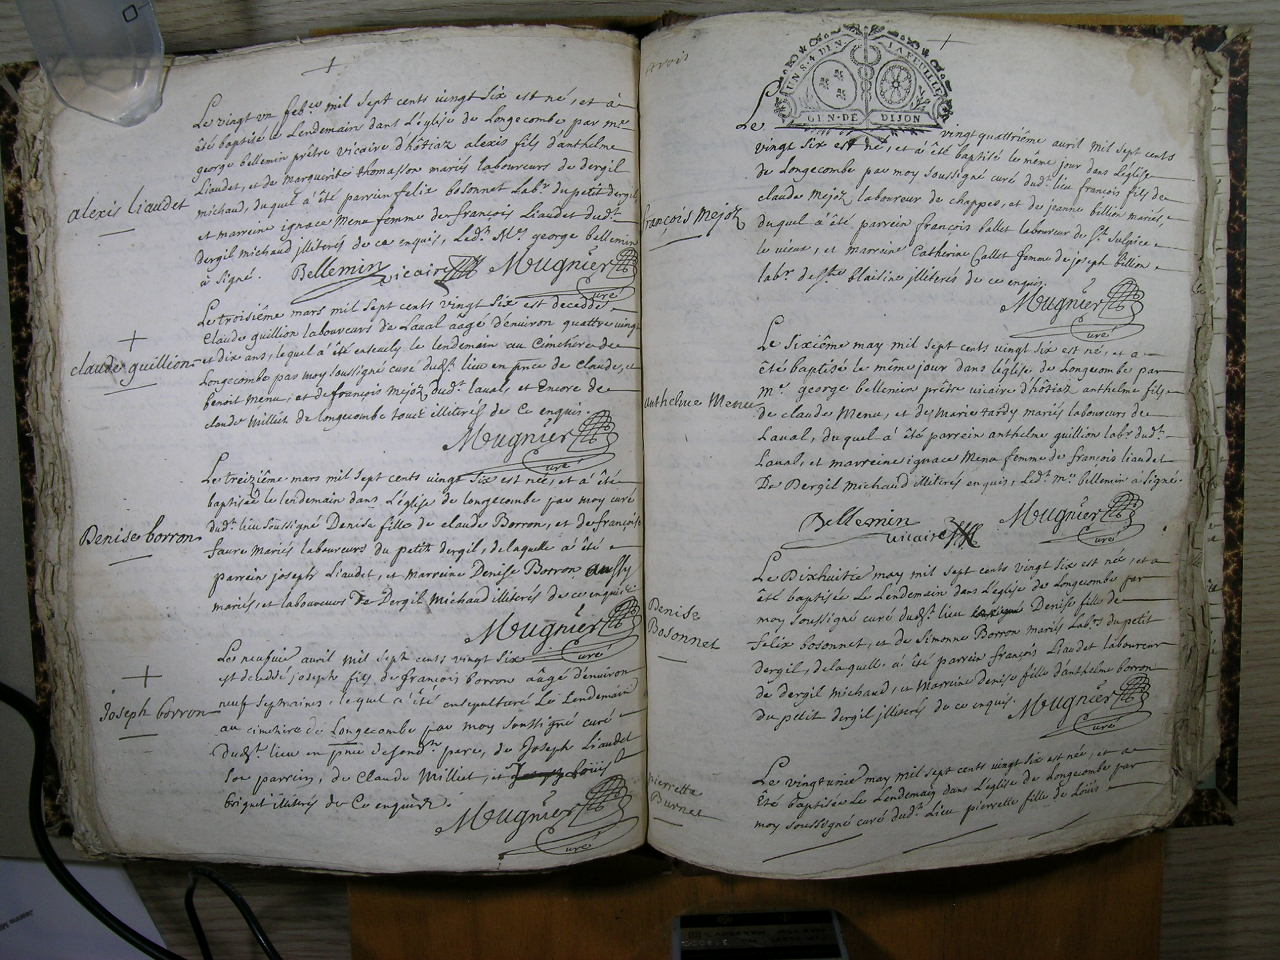 alexis liaudet
Le vingt un feb.er mil sept cents vingt six est né, et à
été baptisé le Lendemain dans L'église de Longecombe par m.re
george bellemin prêtre vicaire d'hôtiaz alexis fils d'anthelme
Liaudet, et de marguerite thomasson mariés laboureurs de dergil
michaud, duquel à été parrein felix bosonnet Lab.r du petit dergil
et marreine ignace Menu femme de françois Liaudet dud.t
dergil michaud jlliterés de ce enquis, Led.t M.re george bellemin
à signé. Bellemin vicaire Mugnier curé
claude guillion
Le troisiéme mars mil sept cents vingt six est decedé
Claude guillion laboureurs de Laval âagé d'environ quatre vingt
et dix ans, lequel à été enseuely le lendemain au Cimetiere de
Longecombe par moy soussigné curé dud.t lieu en pñce de claude, et
benoit menu, et de françois mejoz dud.t laval, et Encore de
claude Milliet de longecombe touts illiterés de Ce enquis.
Mugnier curé
Denise borron
Le treiziéme mars mil sept cents vingt six est née, et à été
baptisée le lendemain dans L'église de Longecombe par moy curé
dud.t lieu soussigné Denise fille de claude Borron, et de françoise
favre mariés laboureurs du petit dergil, de laquelle à été
parrein joseph Liaudet, et Marreine Denise Borron aussy
mariés, et laboureurs De Dergil Michaud illiterés de ce enquis
Mugnier curé
Joseph borron
Le neufuié avril mil sept cents vingt six
est decedé joseph fils de francois borron aagé d'environ
neuf sepmaines, lequel à été ensepulturé Le Lendemain
au cimetiere de Longecombe par moy soussigné curé
dud.t lieu en pñce de son pere, de Joseph Liaudet
son parrein, de Claude Milliet, et Louis
brignet illiterés de Ce enquis.
Mugnier curé
GEN·DE DIJON
françois Mejoz
Le vingt quattriéme avril mil sept cents
vingt six est né, et à été baptisé le même jour dans L'église
de Longecombe par moy soussigné curé dud.t lieu françois fils de
claude Mejoz laboureur de chappes, et de jeanne billion mariés,
duquel à été parrein françois ballet laboureur de S.t Sulpice
le vieux, et marreine Catherine Callet femme de joseph billion
lab.r de blaisine illiterés de ce enquis.
Mugnier curé
anthelme Menu
Le Sixiéme may mil sept cents vingt six est né, et a
été baptisé le même jour dans L'église de Longecombe par
m.re george bellemin prêtre vicaire d'hôtiaz anthelme fils
de claude Menu, et de Marie tardy mariés laboureurs de
Laval, duquel à été parrein anthelme guillion lab.r dud.t
Laval, et marreine ignace Menu femme de françois liaudet
De Dergil Michaud illiterés enquis, Led.t m.re bellemin a signé.
Bellemin vicaire Mugnier curé
Denise
Bosonnet
Le Dixhuitié may mil sept cents vingt six est née, et a
été baptisée Le Lendemain dans L'église de Longecombe par
moy soussigné curé dud.t lieu Denise fille de
felix bosonnet, et de Simonne Borron mariés Lab.rs du petit
dergil, de laquelle à été parrein françois Liaudet laboureur
de Dergil michaud, et Marreine Denise fille d'anthelme borron
du petit dergil jlliterés de ce enquis. Mugnier curé
pierrette
Burnet
Le vingtunié may mil sept cents vingt six est née, et a
Été baptisée Le Lendemain dans L'église de Longecombe par
moy soussigné curé dud.t Lieu pierrette fille de Loüis